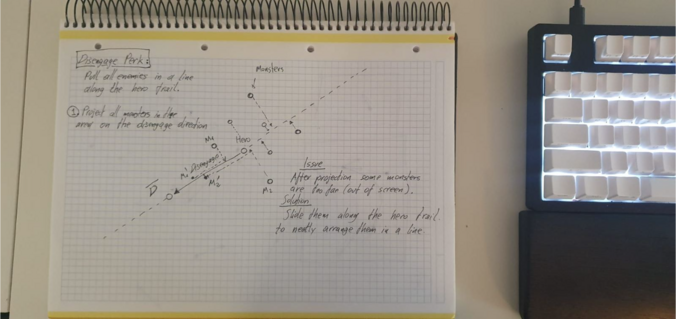 Disengage Perk:
Pull all enemies in a line
along the hero trail.
① Project all monsters in the
area on the disengage direction
Monsters
M4
Hero
Disengage
M1'
M2'
D
M2
Issue
After projection some monsters
are too far (out of screen).
Solution
Slide them along the hero trail
to neatly arrange them in a line